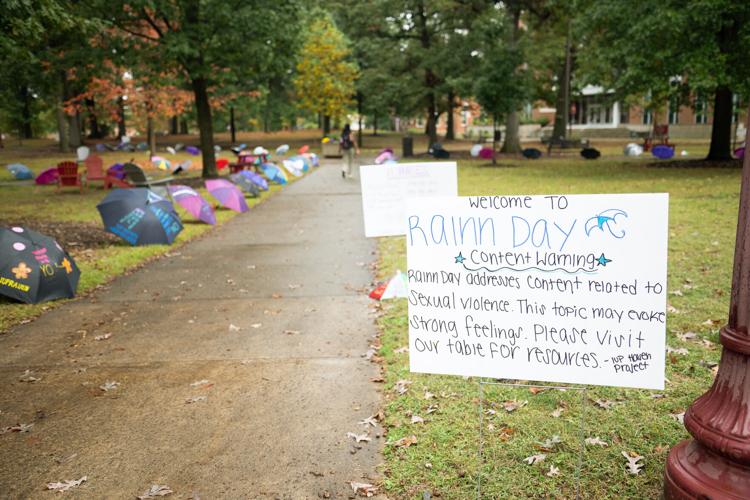 Welcome TO
RAINN DAY
Content Warning
RAINN Day addresses content related to
sexual violence. This topic may evoke
strong feelings. Please visit
our table for resources. - IUP Haven
Project
YOU